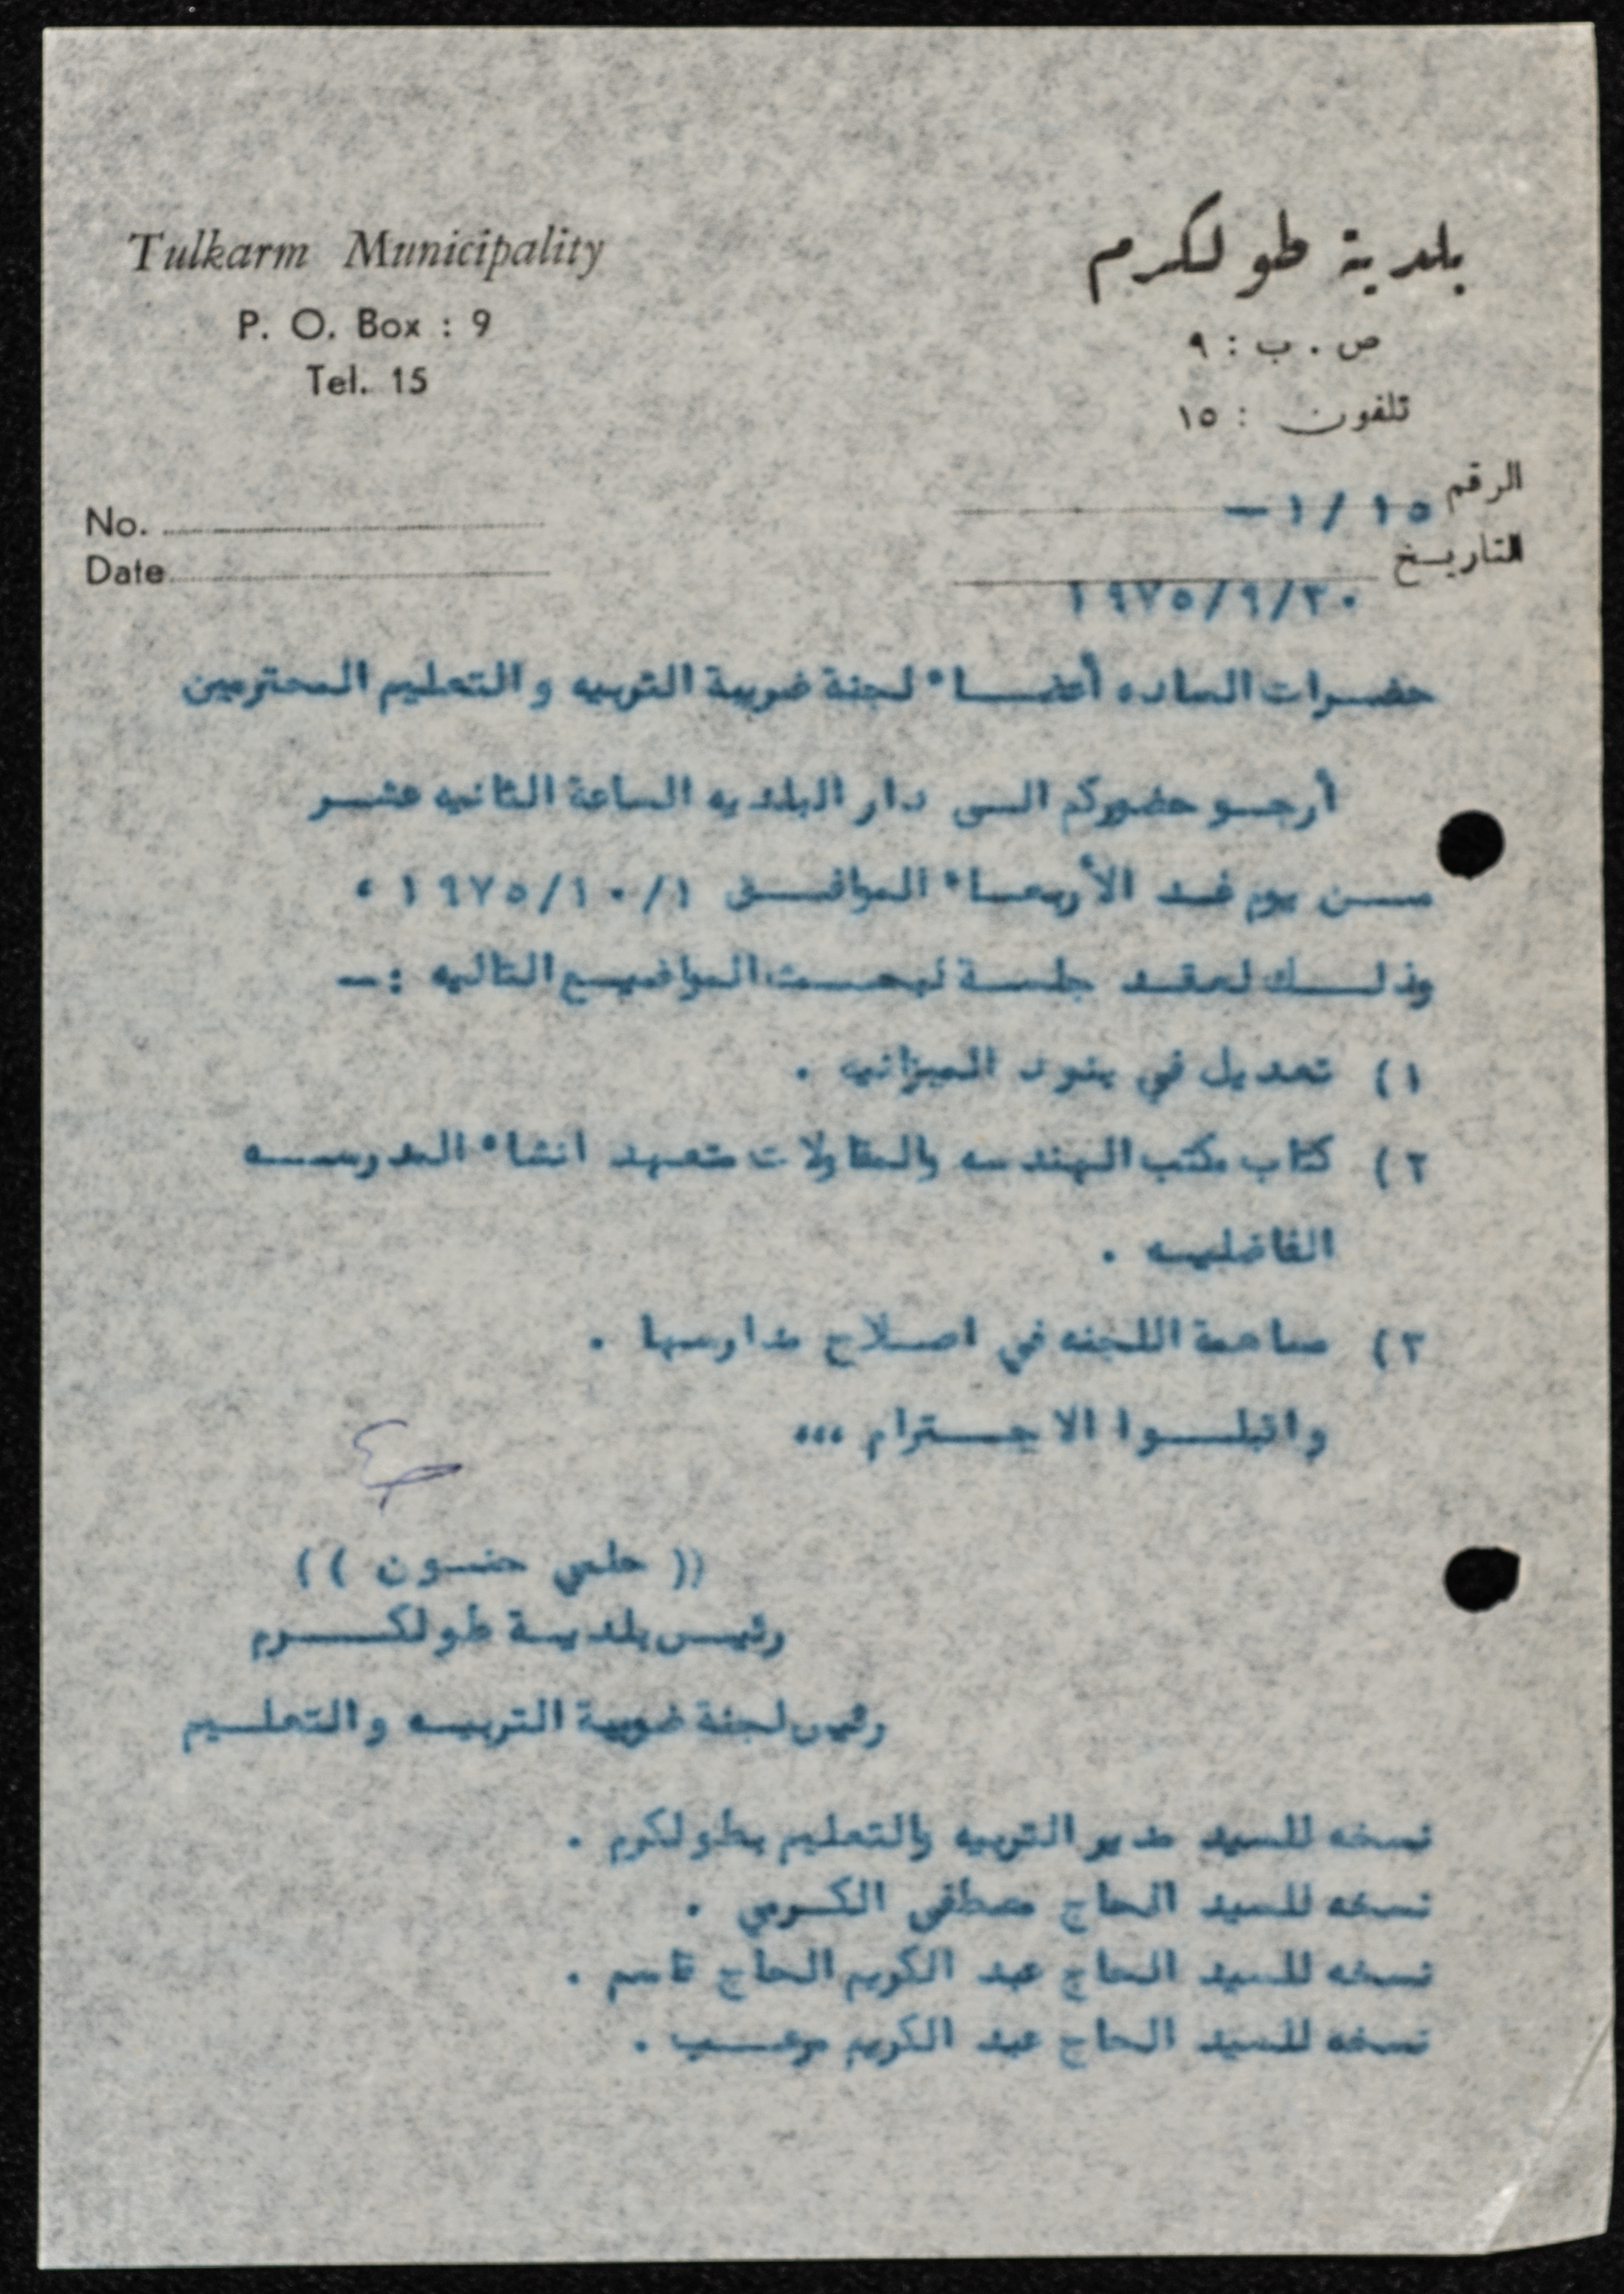 Tulkarm Municipality
P. O. Box : 9
Tel. 15
No.
Date
بلدية طولكرم
ص . ب : ٩
تلفون : ١٥
الرقم ١٥ / ١ –
التاريخ
١٩٧٥/٩/٣٠
حضرات الساده أعضاء لجنة ضريبة التربيه والتعليم المحترمين
أرجو حضوركم الى دار البلديه الساعة الثانيه عشر
من يوم غد الأربعاء الموافق ١٩٧٥/١٠/١ ،
وذلك لعقد جلسة لبحث المواضيع التاليه :–
١) تعديل في بنود الميزانيه .
٢) كتاب مكتب الهندسه والمقاولات متعهد انشاء المدرسه
الفاضليه .
٣) مساهمة اللجنه في اصلاح مدارسها .
واقبلوا الاحترام ،،،
(( حلمي حنون ))
رئيس بلدية طولكرم
رئيس لجنة ضريبة التربيه والتعليم
نسخه للسيد مدير التربيه والتعليم بطولكرم .
نسخه للسيد الحاج مصطفى الكرمي .
نسخه للسيد الحاج عبد الكريم الحاج قاسم .
نسخه للسيد الحاج عبد الكريم مرعب .